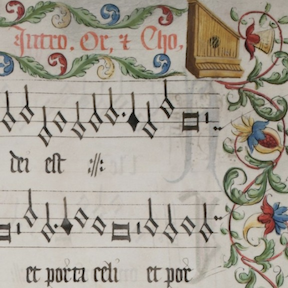 Intro, Or, & Cho,
dei est :||:
et porta celi et por